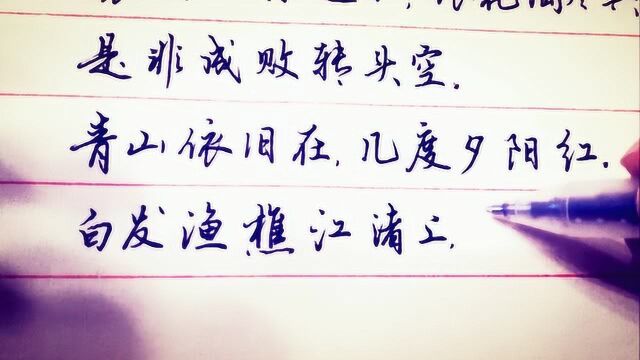 是非成败转头空.
青山依旧在,几度夕阳红.
白发渔樵江渚上,